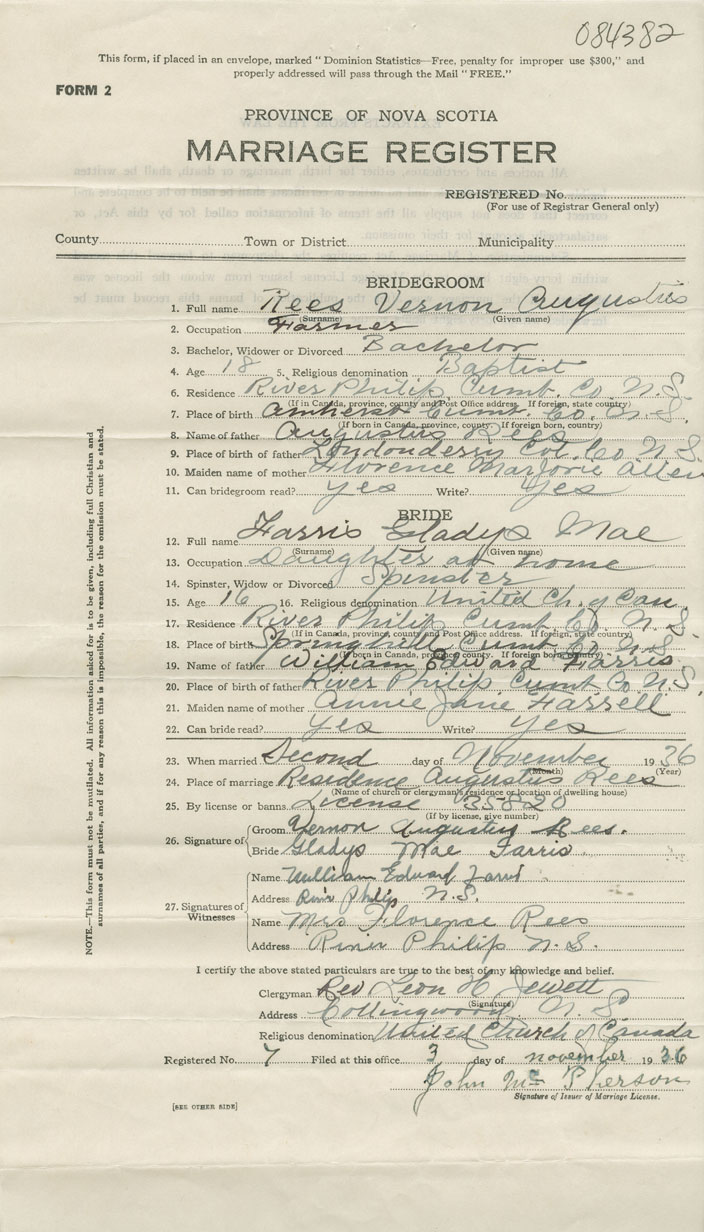 084382
This form, if placed in an envelope, marked "Dominion Statistics—Free, penalty for improper use $300," and
properly addressed will pass through the Mail "FREE."
FORM 2
PROVINCE OF NOVA SCOTIA
MARRIAGE REGISTER
REGISTERED No.
(For use of Registrar General only)
County Town or District Municipality
BRIDEGROOM
1. Full name Rees Vernon Augustus
(Surname) (Given name)
2. Occupation Farmer
3. Bachelor, Widower or Divorced Bachelor
4. Age 18 5. Religious denomination Baptist
6. Residence River Philip Cumb. Co. N.S.
(If in Canada, province, county and Post Office address. If foreign, state country)
7. Place of birth Amherst Cumb. Co. N.S.
(If born in Canada, province, county. If foreign born, country)
8. Name of father Augustus Rees
9. Place of birth of father Londonderry Col. Co N.S.
10. Maiden name of mother Florence Marjorie Allen
11. Can bridegroom read? yes Write? yes
BRIDE
12. Full name Farris Gladys Mae
(Surname) (Given name)
13. Occupation Daughter at home
14. Spinster, Widow or Divorced Spinster
15. Age 16 16. Religious denomination United Ch. of Can.
17. Residence River Philip Cumb Co N.S.
(If in Canada, province, county and Post Office address. If foreign, state country)
18. Place of birth Springhill Cumb. Co. N.S.
(If born in Canada, province county. If foreign born country)
19. Name of father William Edward Farris
20. Place of birth of father River Philip Cumb Co N.S.
21. Maiden name of mother Annie Jane Farrell
22. Can bride read? yes Write? yes
23. When married Second day of November 19 36
(Month) (Year)
24. Place of marriage Residence Augustus Rees
(Name of church or clergyman's residence or location of dwelling house)
25. By license or banns License 35820
(If by license, give number)
26. Signature of
Groom Vernon Augustus Rees.
Bride Gladys Mae Farris
27. Signatures of Witnesses
Name William Edward Farris
Address River Philip N.S.
Name Mrs Florence Rees
Address River Philip N.S.
I certify the above stated particulars are true to the best of my knowledge and belief.
Clergyman Rev Leon H Jewett
(Signature)
Address Collingwood, N.S
Religious denomination United Church of Canada
Registered No. 7 Filed at this office 3 day of november 19 36
John McPherson
Signature of Issuer of Marriage License.
[SEE OTHER SIDE]
NOTE.—This form must not be mutilated. All information asked for is to be given, including full Christian and
surnames of all parties, and if for any reason this is impossible, the reason for the omission must be stated.